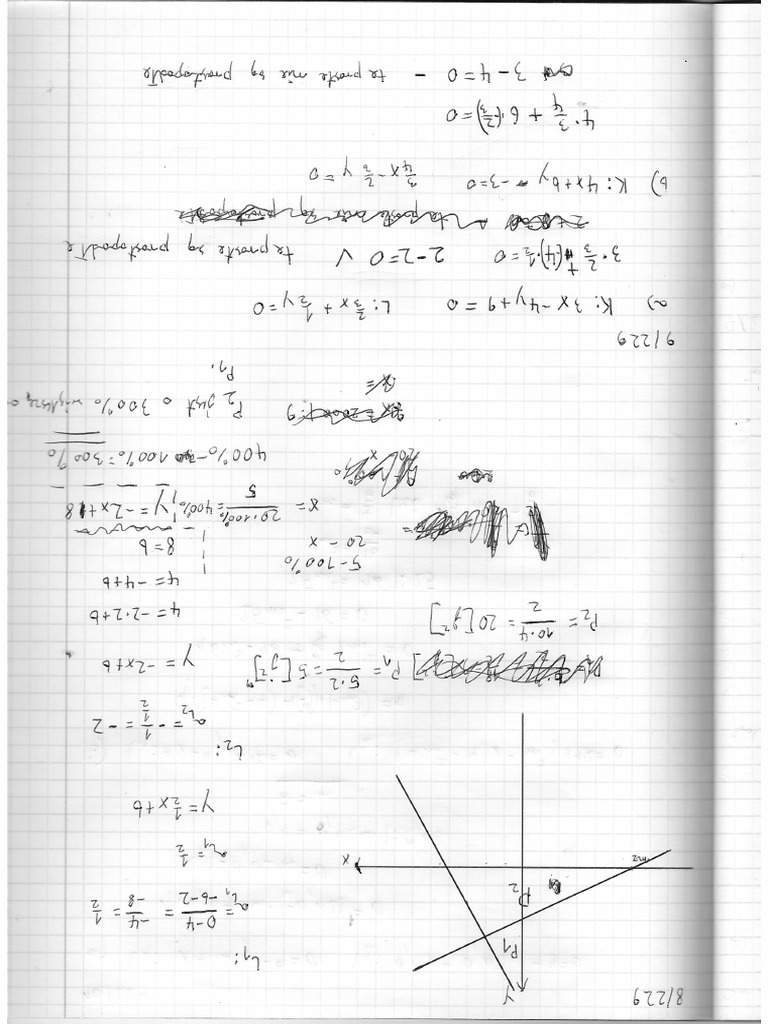 8/229
y
x
P1
P2
L1:
aL1 = 0-4/-6-2 = -4/-8 = 1/2
a1 = 1/2
y = 1/2x + b
L2:
aL2 = - 1/1/2 = -2
y = -2x+b
4 = -2·2+b
4 = -4+b
8 = b
y = -2x + 8
P1 = 5·2/2 = 5 [j²]
P2 = 10·4/2 = 20 [j²]
5 - 100%
20 - x
x = 20·100%/5 = 400%
400% - 100% = 300%
P2 jest o 300% większe o
P1.
9/229
a) K: 3x - 4y + 9 = 0 L: 2/3x + 1/2y = 0
3·2/3 + (-4)·1/2 = 0 2-2=0 v te proste są prostopadłe
b) K: 4x + 6y - 3 = 0 3/4x - 2/3y = 0
4·3/4 + 6·(-2/3) = 0
3 - 4 = 0 - te proste nie są prostopadłe